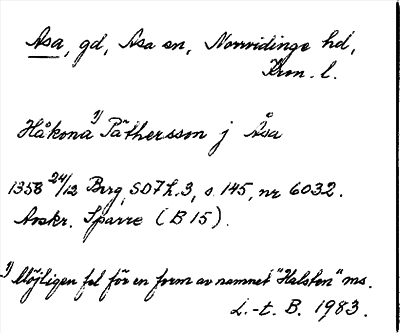 Asa, gd, Asa sn, Norrvidinge hd,
Kron. l.
Håkona 1) Päthersson j Åsa
1358 24/12 Brrg, SD 7 h. 3, s. 145, nr 6032.
Avskr. Sparre (B 15).
1) Möjligen fel för en form av namnet "Halsten" ms.
L.-t. B. 1983.